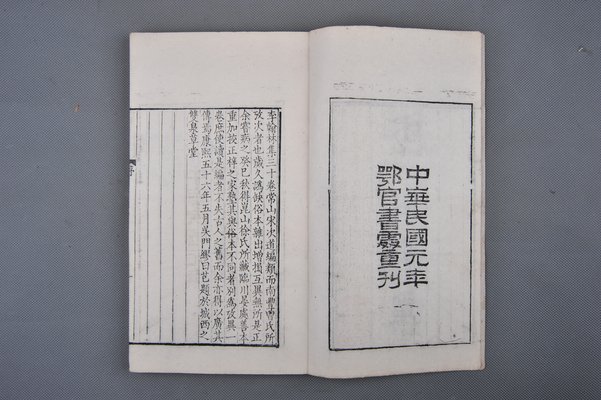 中華民國元年
鄂官書處重刊
李翰林集三十卷常山宋次道編類而南豐曾氏所
攷次者也歲久譌缺俗本雜出增損互異無所是正
余嘗病之癸巳秋得崑山徐氏所藏臨川晏處善本
重加按正梓之家塾其與俗本不同者別為攷異一
卷庶使讀是編者不失古人之舊而余亦得以廣其
傳焉康熙五十六年五月吳門繆曰芑題於城西之
雙泉草堂